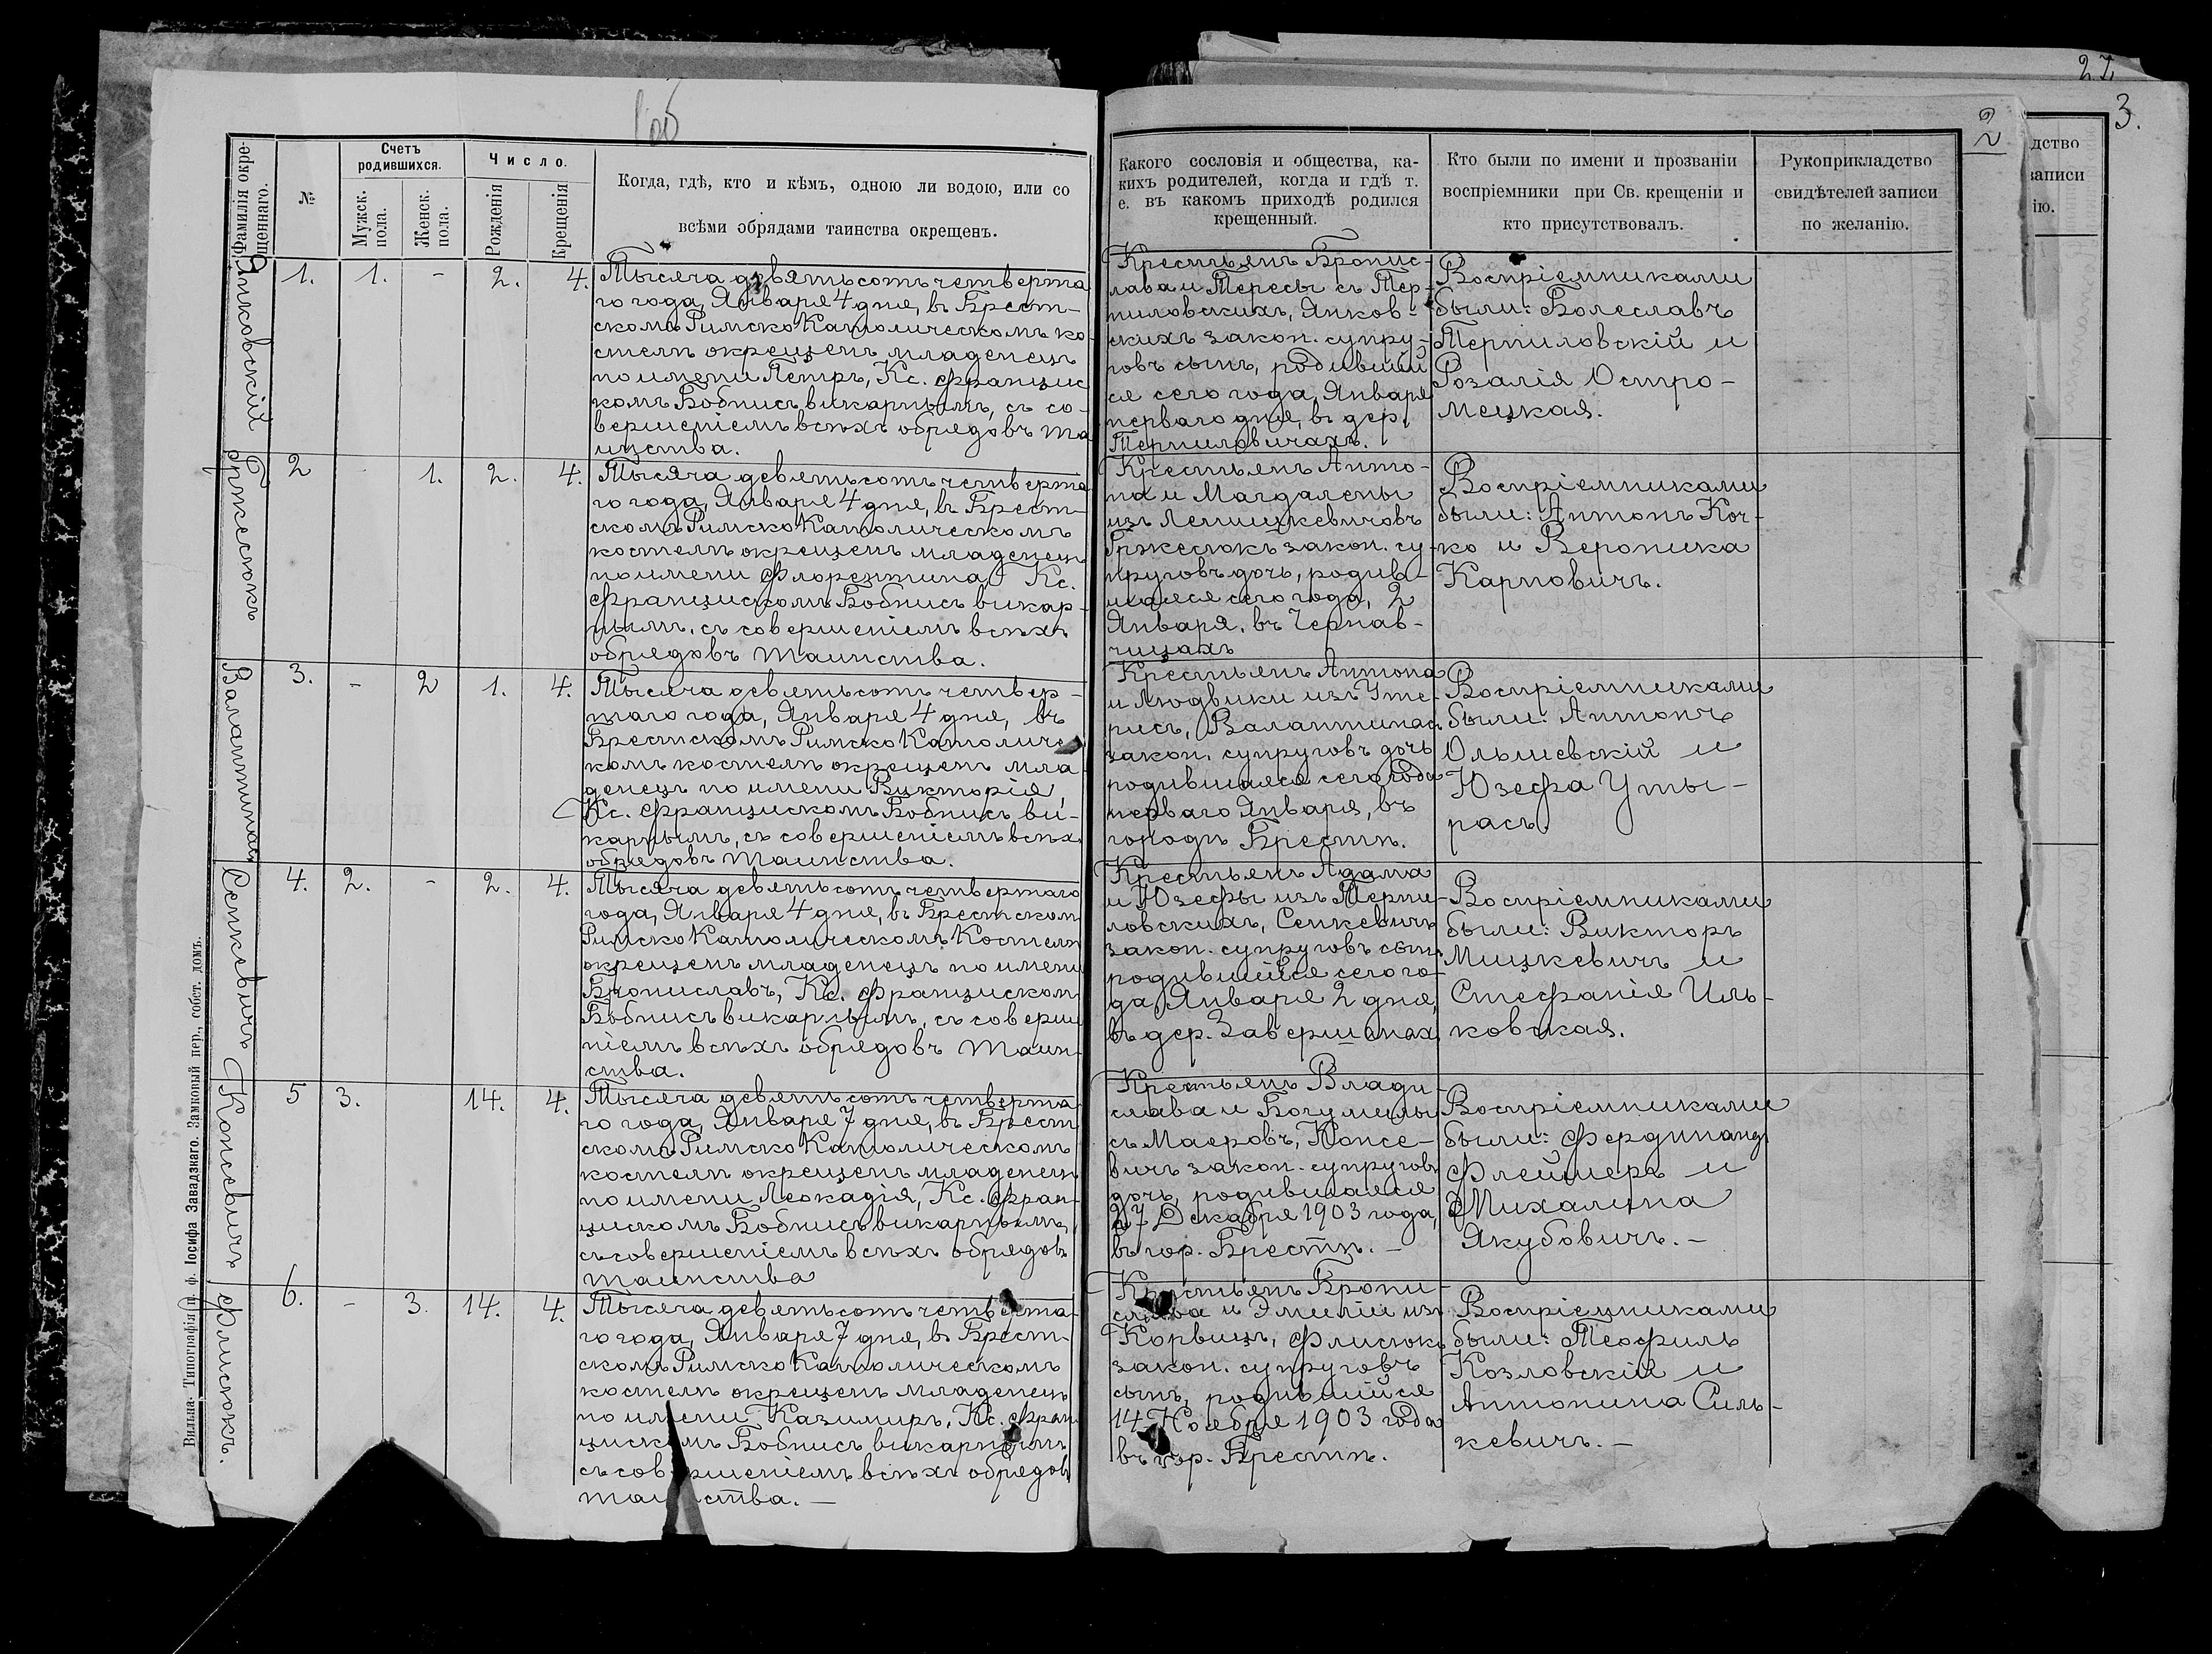 1об
Фамилія окре-
щеннаго.
№
Счетъ
родившихся.
Мужск.
пола.
Женск.
пола.
Число.
Рожденія
Крещенія
Когда, гдѣ, кто и кѣмъ, одною ли водою, или со
всѣми обрядами таинства окрещенъ.
Янковскій
1. 1. - 2. 4.
Тысяча девятьсотъ четверта
го года, Января 4 дня, въ Брест-
скомъ Римско Католическомъ ко
стелѣ окрещенъ младенецъ
по имени Петръ, Кс. Францис
комъ Бобнисъ викарнымъ, съ со-
вершеніемъ всѣхъ обрядовъ та
инства.
Гржесюкъ
2 1. 2. 4.
Тысяча девятьсотъ четверта
го года, Января 4 дня, въ Брест-
скомъ Римско Католическомъ
костелѣ окрещенъ младенецъ
по имени Флорентина, Кс.
Францискомъ Бобнисъ викар-
нымъ, съ совершеніемъ всѣхъ
обрядовъ таинства.
Валантинас
3. - 2 1. 4.
Тысяча девятьсотъ четвер-
таго года, Января 4 дня, въ
Брестскомъ Римско Католичес
комъ костелѣ окрещенъ мла
денецъ по имени Викторія,
Кс. Францискомъ Бобнисъ ви-
карнымъ, съ совершеніемъ всѣхъ
обрядовъ таинства.
Сенкевичъ
4. 2. - 2. 4.
Тысяча девятьсотъ четвертаго
года, Января 4 дня, въ Брестском
Римско Католическомъ Костелѣ
окрещенъ младенецъ по имени
Брониславъ, Кс. Францискомъ
Бобнисъ викарнымъ, съ соверше
ніемъ всѣхъ обрядовъ таин-
ства.
Консевичъ
5 3. 14. 4.
Тысяча девятьсотъ четверта-
го года, Января 7 дня, въ Брест
скомъ Римско Католическомъ
костелѣ окрещенъ младенецъ
по имени Леокадія, Кс. Фран-
цискомъ Бобнисъ викарнымъ,
съ совершеніемъ всѣхъ обрядовъ
таинства
Флисюкъ.
6. - 3. 14. 4.
Тысяча девятьсотъ четверта-
го года, Января 7 дня, въ Брест-
скомъ Римско Католическомъ
костелѣ окрещенъ младенецъ
по имени Казимиръ, Кс. Фран
цискомъ Бобнисъ викарнымъ
съ совершеніемъ всѣхъ обрядовъ
таинства. —
Вильна. Типографія п. ф. Іосифа Завадзкаго. Замковый пер., собст. домъ.
Какого сословія и общества, ка-
кихъ родителей, когда и гдѣ т.
е. въ какомъ приходѣ родился
крещенный.
Кто были по имени и прозваніи
воспріемники при Св. крещеніи и
кто присутствовалъ.
Рукоприкладство
свидѣтелей записи
по желанію.
2
Крестьянъ Бронис-
лава и Тересы съ Тер-
пиловскихъ, Янков-
скихъ закон. супру-
говъ сынъ, родившій
ся сего года, Января
перваго дня, въ дер.
Терпиловичахъ.
Воспріемниками
были: Болеславъ
Терпиловскій и
Розалія Остро-
мецкая.
Крестьянъ Анто-
на и Магдалены
изъ Лемишкевичовъ
Гржесюкъ закон. су-
пруговъ дочь, родив-
шаяся сего года, 2
Января, въ Чернав-
чицахъ
Воспріемниками
были: Антонъ Коч-
ко и Вероника
Карповичъ.
Крестьянъ Антона
и Людвики изъ Уте-
рисъ, Валантинас
закон. супруговъ дочь
родившаяся сего года
перваго Января, въ
городѣ Брестѣ.
Воспріемниками
были: Антонъ
Ольшевскій и
Юзефа Уты-
расъ.
Крестьянъ Адама
и Юзефы изъ Терпи-
ловскихъ, Сенкевичъ
закон. супруговъ сынъ
родившійся сего го-
да, Января 2 дня,
въ дер. Завершанах
Воспріемниками
были: Викторъ
Мицкевичъ и
Стефанія Иль-
ковская.
Крестьянъ Влади-
слава и Богумилы
съ Маеровъ, Консе-
вичъ закон. супруговъ
дочь, родившаяся
27 Декабря 1903 года,
въ гор. Брестѣ. —
Воспріемниками
были: Фердинанд
Флейшеръ и
Михалина
Якубовичъ. —
Крестьянъ Брони-
слава и Эмиліи изъ
Корвицъ, Флисюкъ
закон. супруговъ
сынъ, родившійся
14 Ноября 1903 года
въ гор. Брестѣ.
Воспріемниками
были: Теофиль
Козловскій и
Антонина Силь-
кевичъ. —
27
3.
дство
записи
ію.